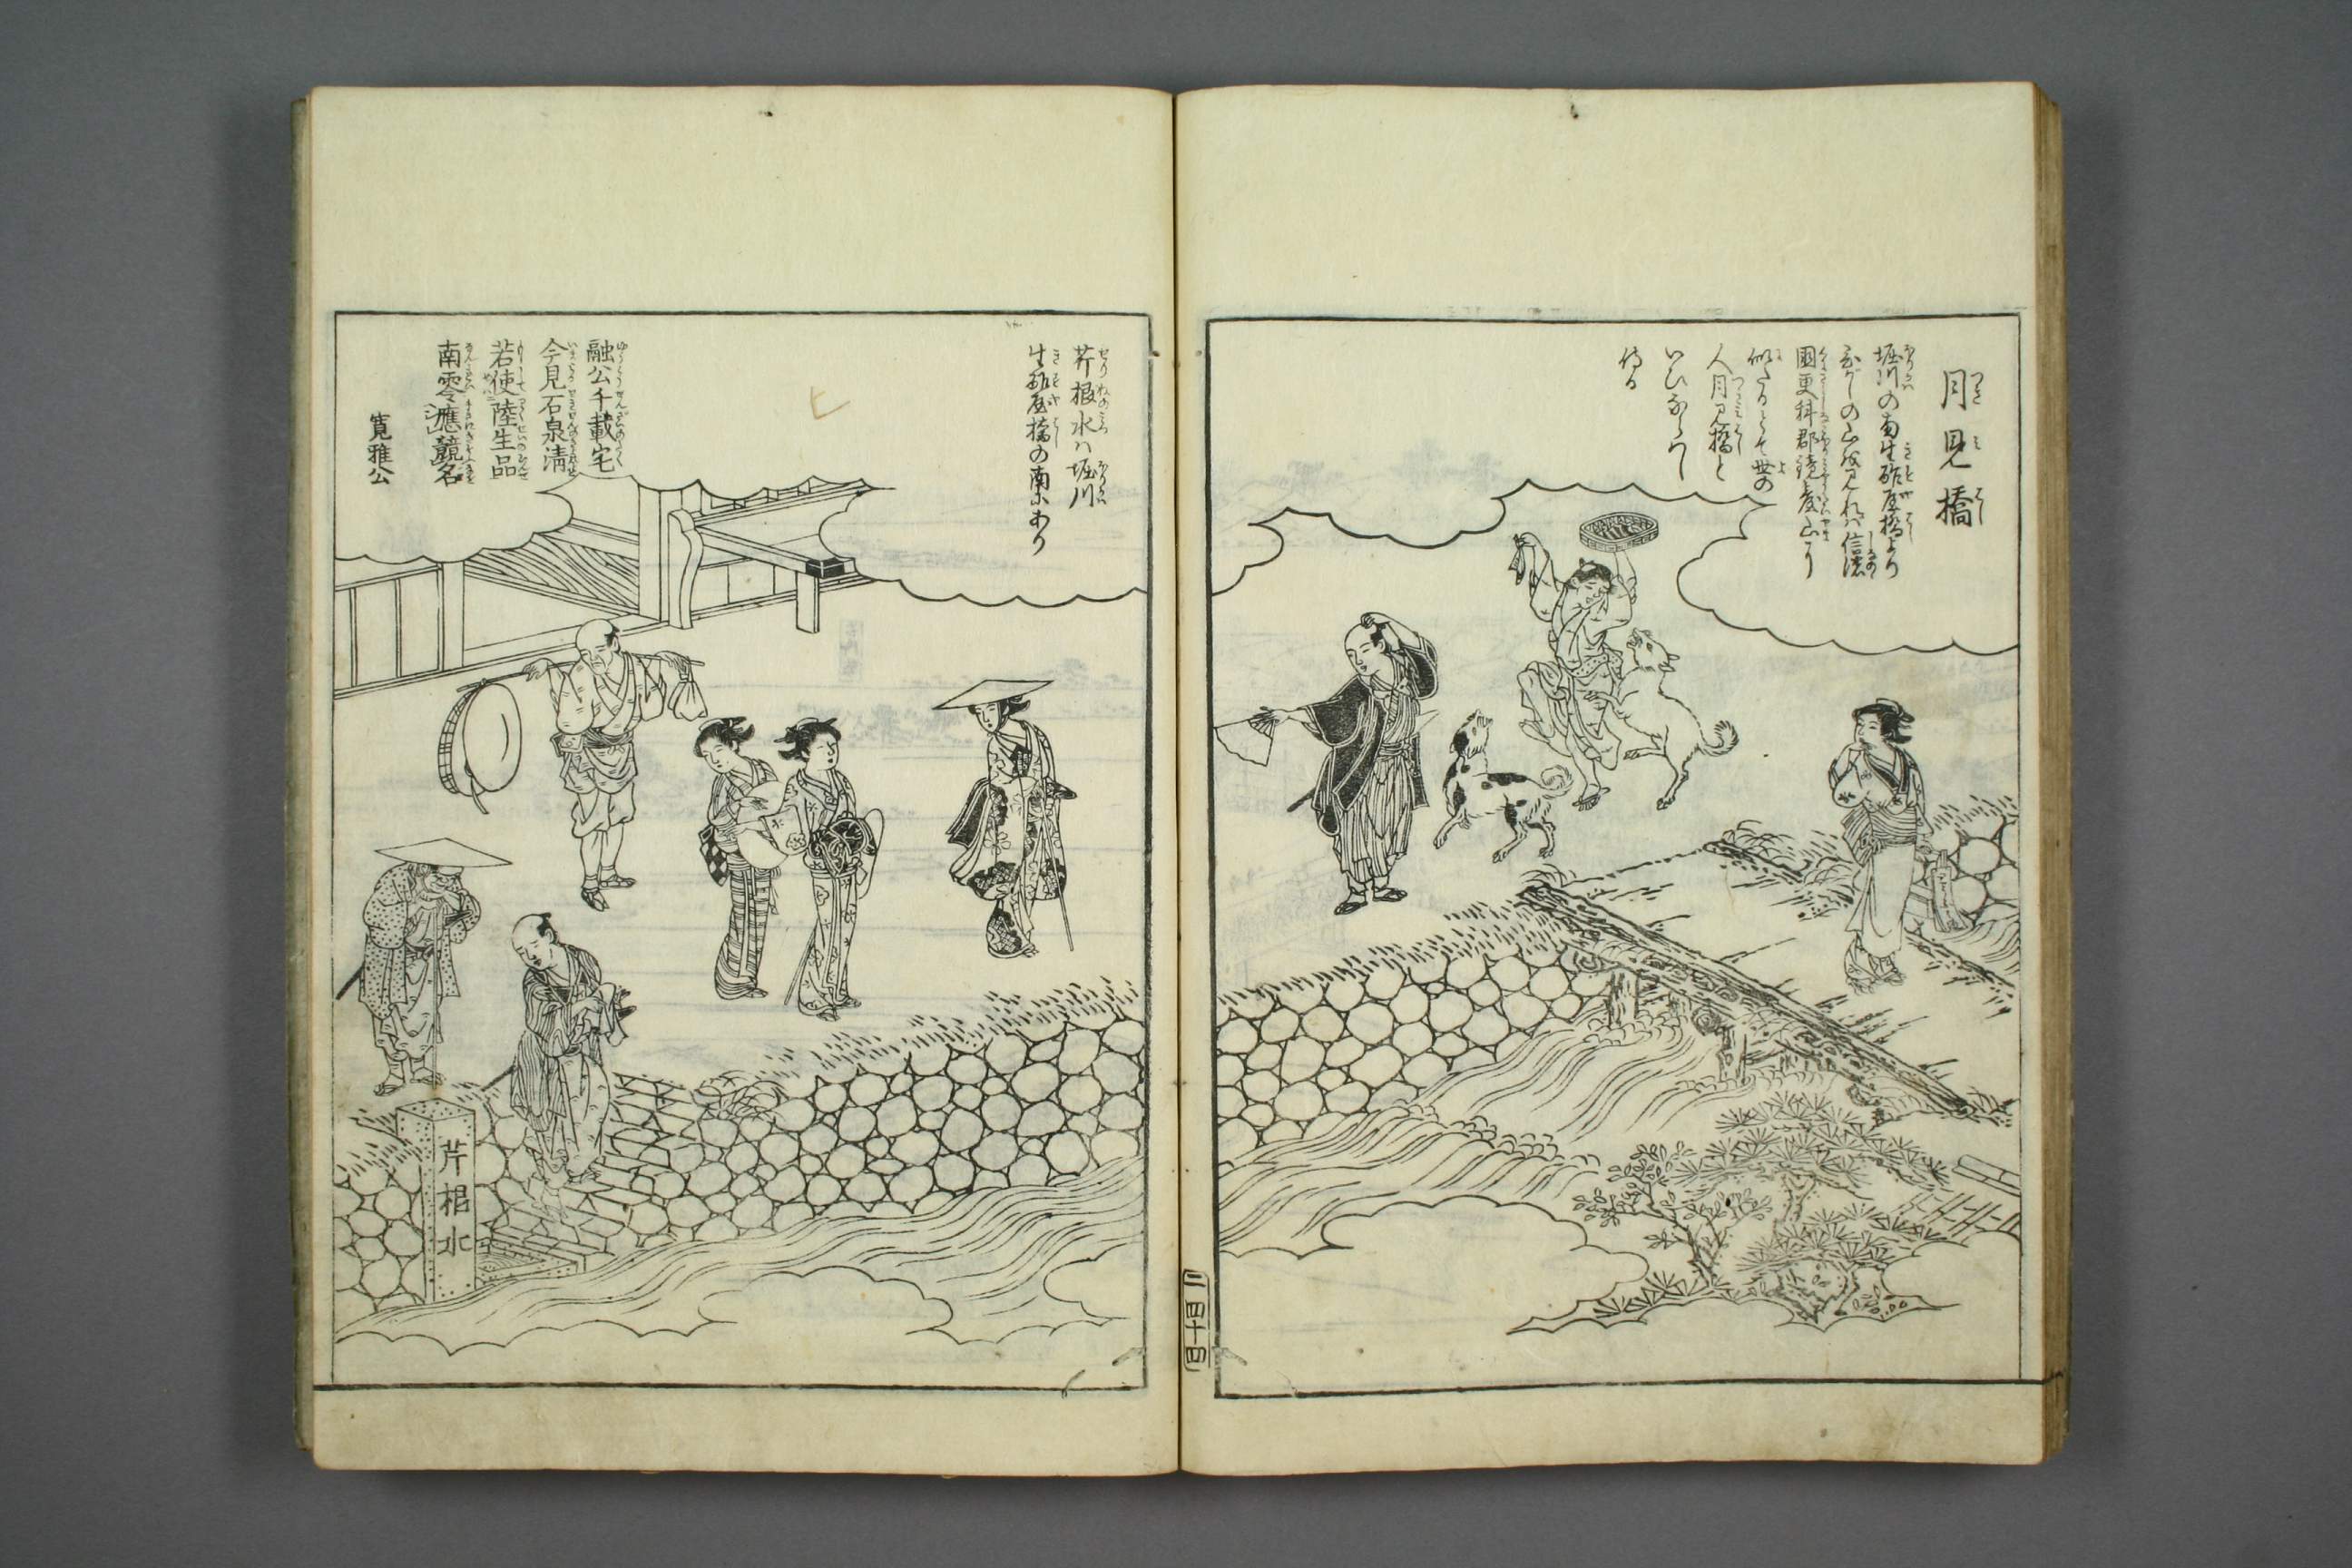 月見橋
堀川の南生酢屋橋より
ひがしの山を見れバ信濃
國更科郡鏡臺山に
似たりとて世の
人月見橋と
いひならハし
侍る
芹根水ハ堀川
生酢屋橋の南にあり
融公千載宅
今見石泉清
若使陸生品
南零應競名
寛雅公
芹根水
二 四十四